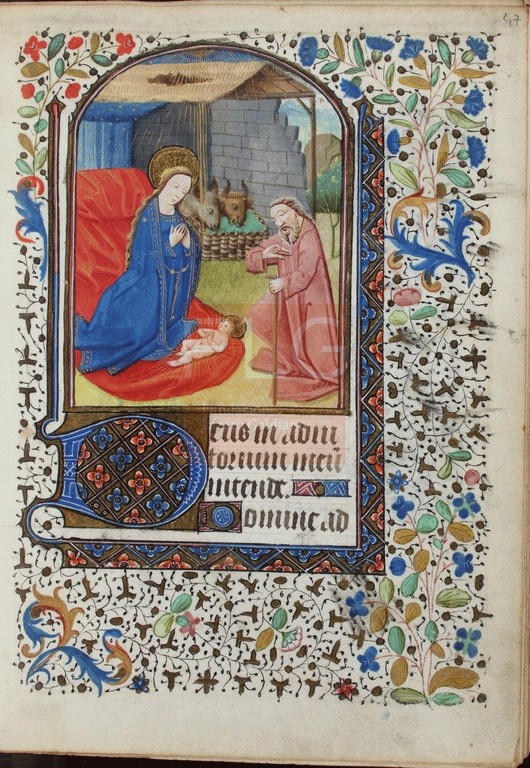 Deus in adiu
torium meū
intende.
Domine ad